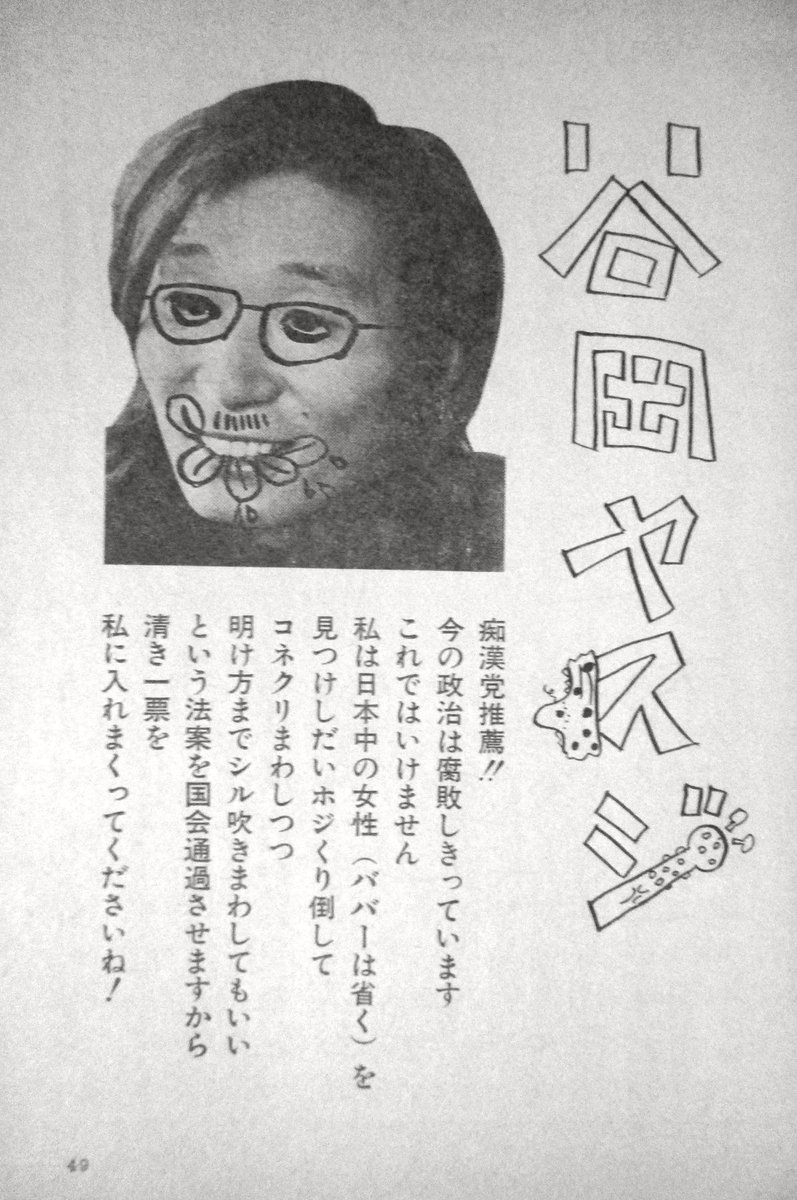 谷岡ヤスジ
痴漢党推薦!!
今の政治は腐敗しきっています
これではいけません
私は日本中の女性（ババーは省く）を
見つけしだいホジくり倒して
コネクリまわしつつ
明け方までシル吹きまわしてもいい
という法案を国会通過させますから
清き一票を
私に入れまくってくださいね！
49